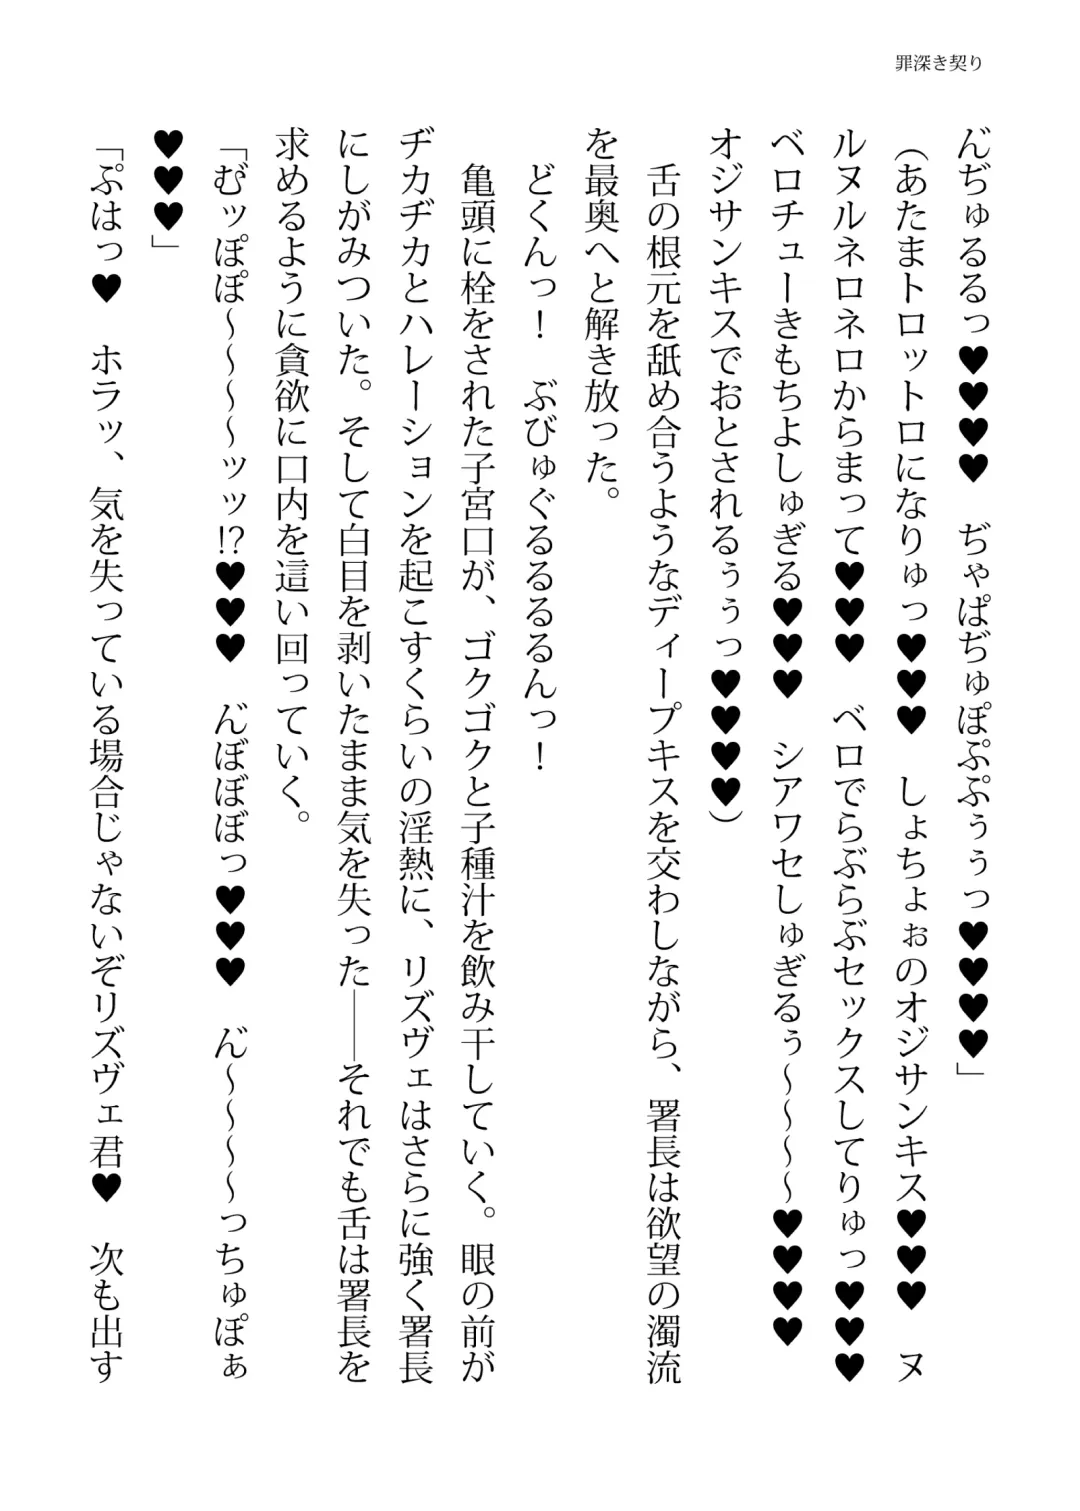 罪深き契り
ん゛ぢゅるるっ♥♥♥♥　ぢゃぱぢゅぽぷぷぅぅっ♥♥♥♥」
（あたまトロットロになりゅっ♥♥♥　しょちょぉのオジサンキス♥♥♥　ヌ
ルヌルネロネロからまって♥♥♥　ベロでらぶらぶセックスしてりゅっ♥♥♥
ベロチューきもちよしゅぎる♥♥♥　シアワセしゅぎるぅ～～～～♥♥♥♥
オジサンキスでおとされるぅぅっ♥♥♥♥）
　舌の根元を舐め合うようなディープキスを交わしながら、署長は欲望の濁流
を最奥へと解き放った。
　どくんっ！　ぶびゅぐるるるるんっ！
　亀頭に栓をされた子宮口が、ゴクゴクと子種汁を飲み干していく。眼の前が
ヂカヂカとハレーションを起こすくらいの淫熱に、リズヴェはさらに強く署長
にしがみついた。そして白目を剥いたまま気を失った――それでも舌は署長を
求めるように貪欲に口内を這い回っていく。
「む゛ッぽぽ～～～～ッッ⁉♥♥♥　ん゛ぼぼぼっ♥♥♥　ん゛～～～～っちゅぽぁ
♥♥♥」
「ぷはっ♥　ホラッ、気を失っている場合じゃないぞリズヴェ君♥　次も出す